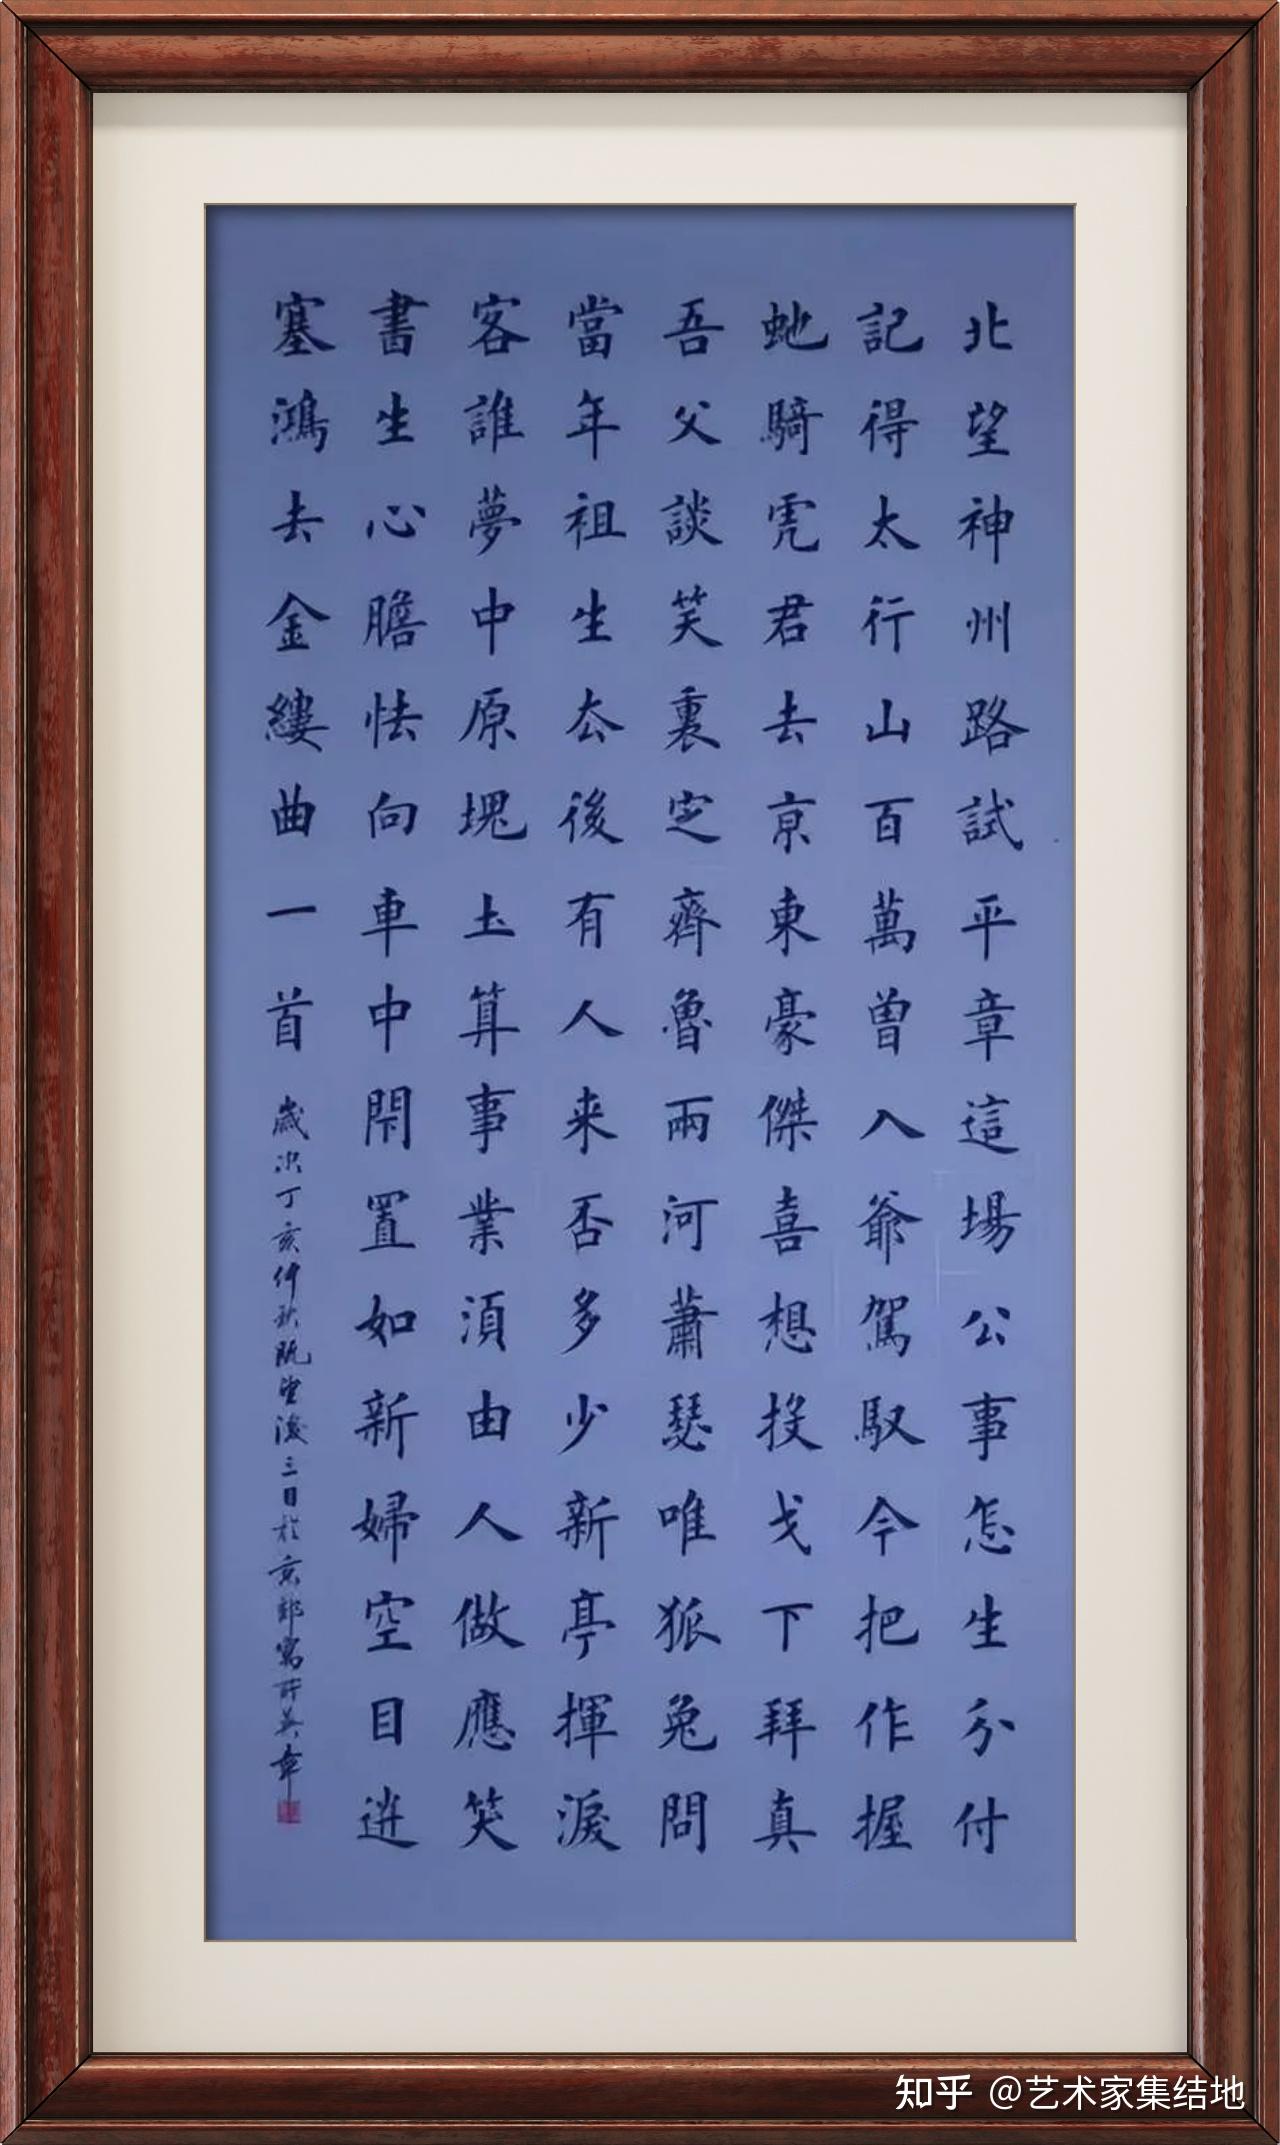 北望神州路試平章這場公事怎生分付
記得太行山百萬曾入爺駕馭今把作握
虵騎虎君去京東豪傑喜想投戈下拜真
吾父談笑裏定齊魯兩河蕭瑟唯狐兔問
當年祖生去後有人来否多少新亭揮淚
客誰夢中原塊土算事業須由人做應笑
書生心膽怯向車中閉置如新婦空目迸
塞鴻去金縷曲一首
歲次丁亥仲秋既望後三日於京郊寫許英章
知乎 @艺术家集结地